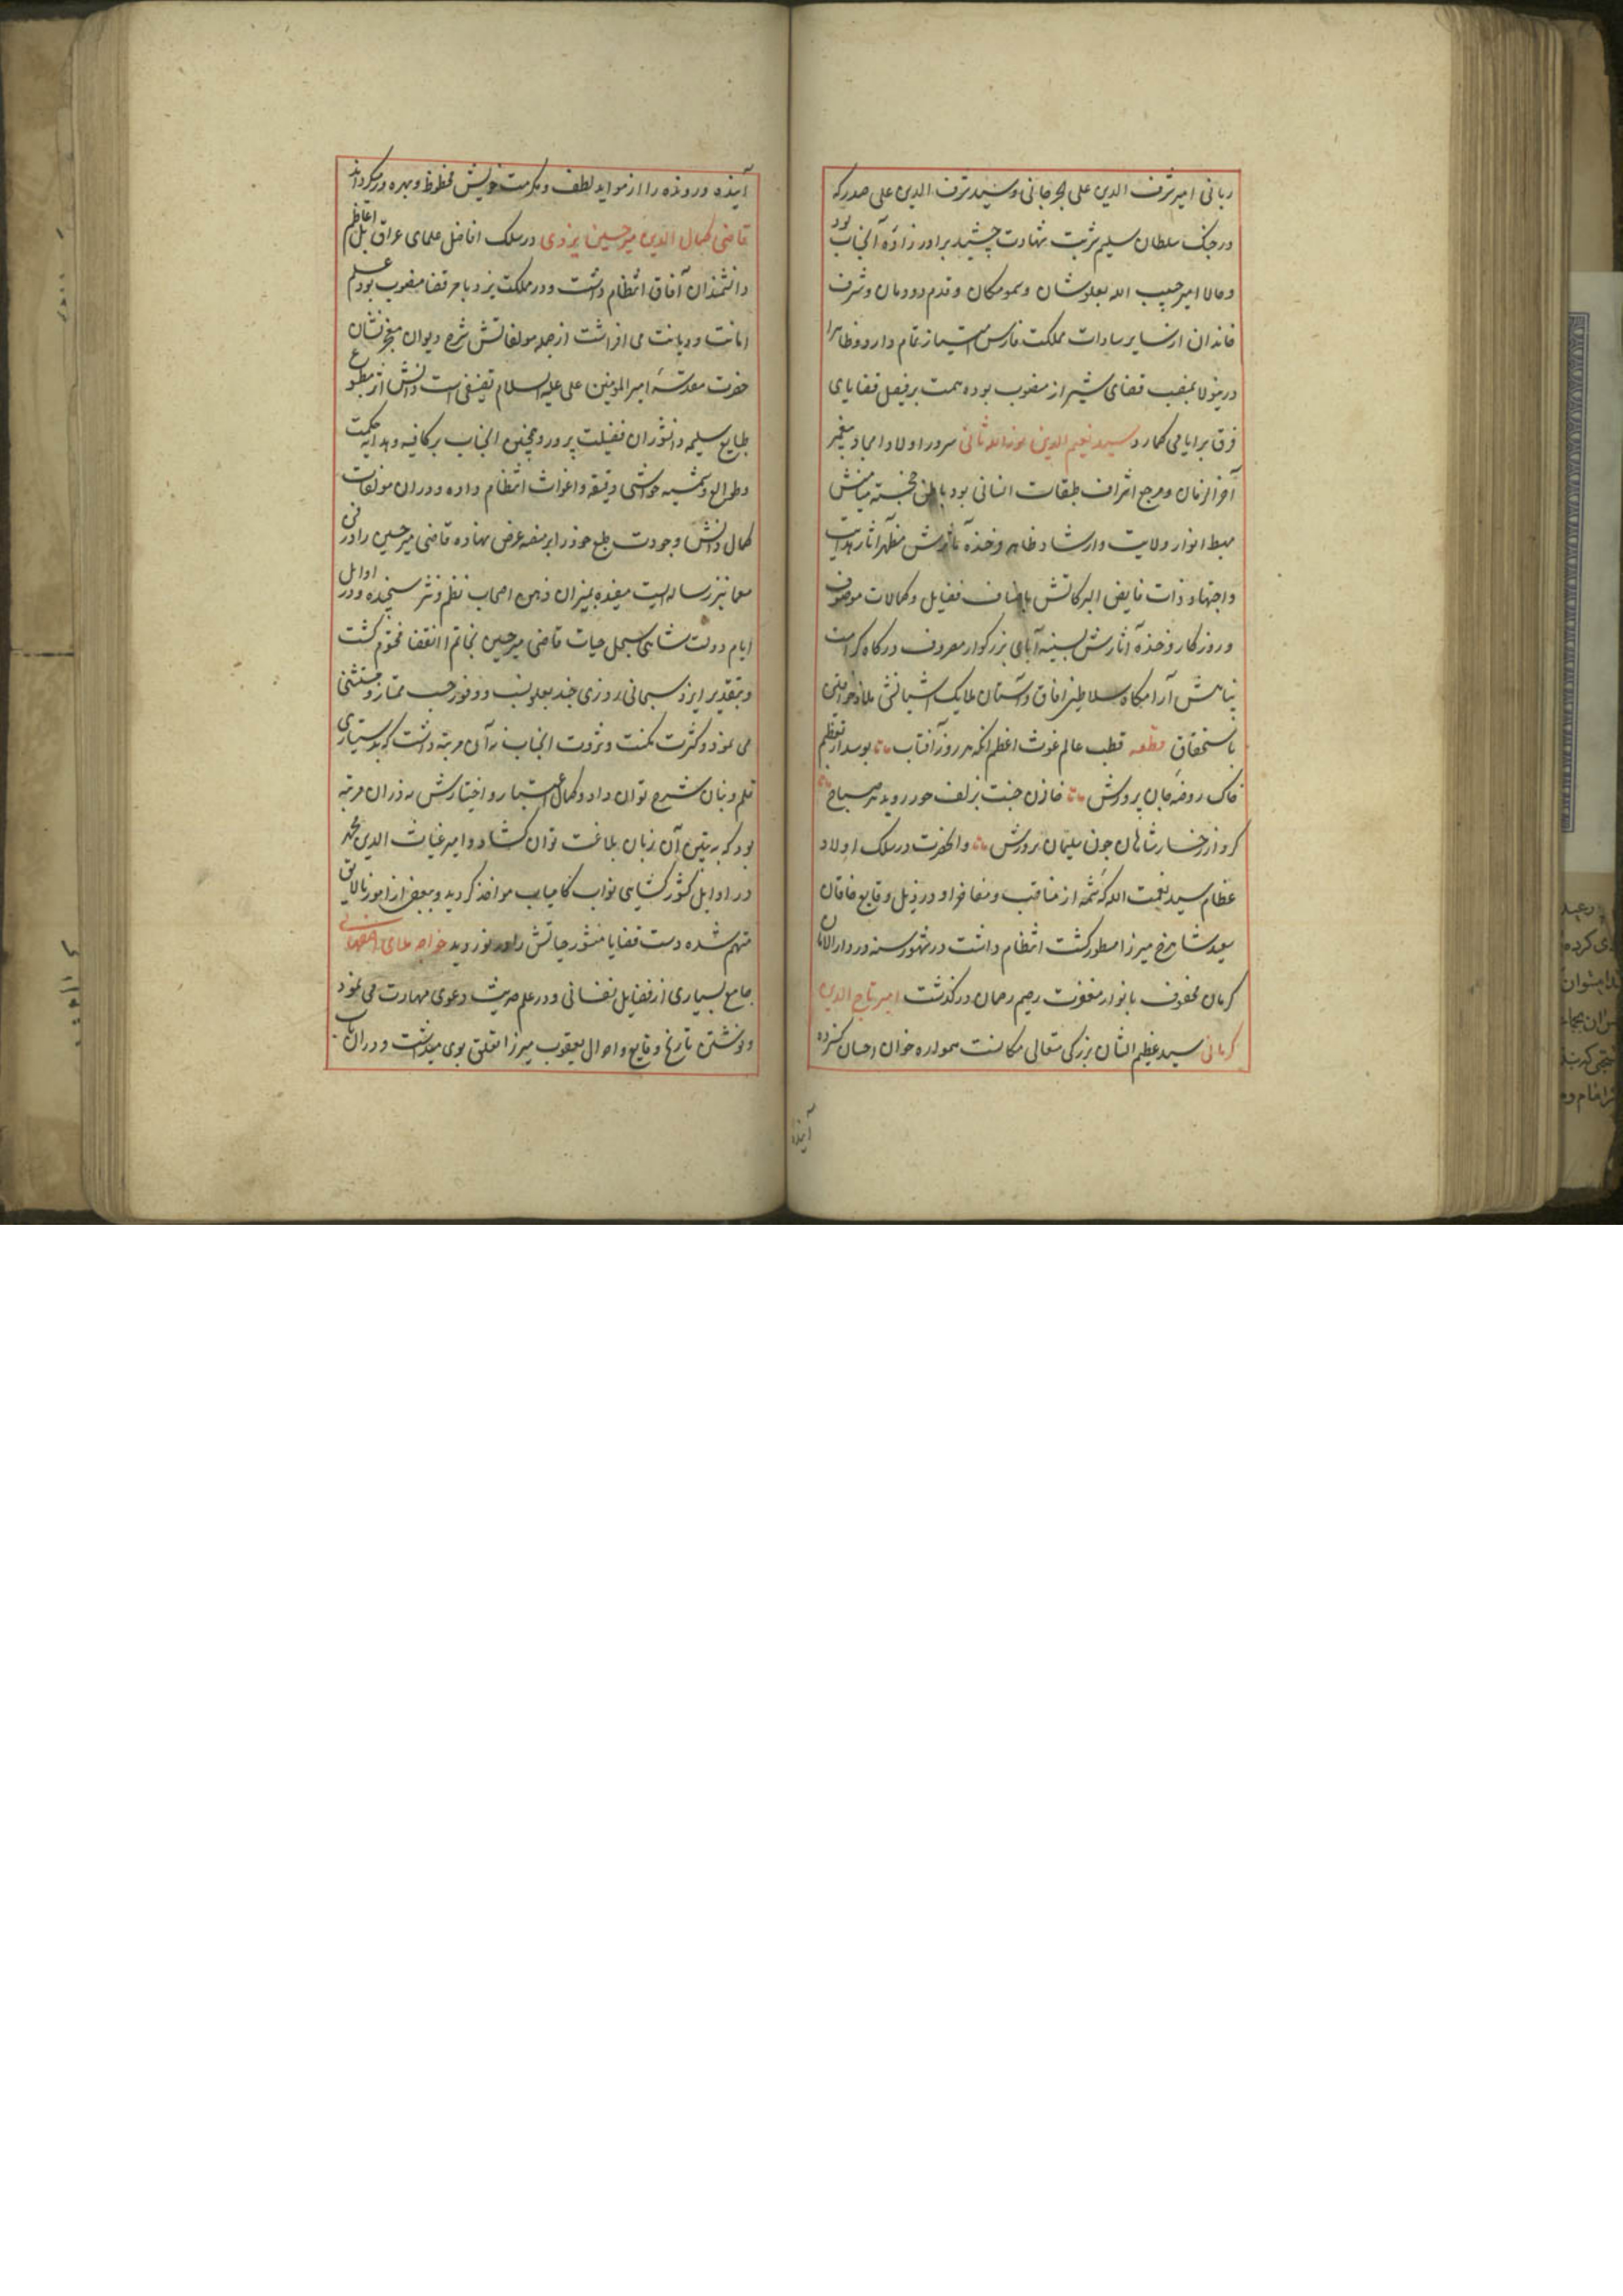 ربانی امیر شرف الدین علی الجرجانی و سید شرف الدین علی صدر که
در جنک سلطان سلیم شربت شهادت چشید برادر زاده آنجناب بود
و حالا امیر حبیب الله بعلو شان و سمو مکان و قدم دودمان و شرف
خاندان از سایر سادات مملکت فارس امتیاز تمام دارد و ظاهرا
درینولا بمنصب قضای شیراز منصوب بوده همت بر فیصل قضایای
فرق برایا می کمارد سید نعیم الدین نعمة الله ثانی سرور اولاد امجاد پیغمبر
آخر الزمان و مرجع اشراف طبقات انسانی بود باطن خجسته میامنش
مهبط انوار ولایت و ارشاد و ظاهر فرخنده مآثرش مظهر آثار هدایت
و اجتهاد ذات فایض البرکاتش باصناف فضایل و کمالات موصوف
و روزکار فرخنده آثارش بسینه آبای بزرکوار معروف درکاه کرامت
پناهش آرامکاه سلاطین آفاق و آستان ملایک آشیانش ملاذ خواقین
باستحقاق قطعه قطب عالم غوث اعظم آنکه هر روز آفتاب بوسد از تعظیم
خاک روضه جان پرورش خازن جنت بزلف حور روید هر صباح
کرد از رخسار شاهان چون سلیمان بر درش و آنحضرت در سلک اولاد
عظام سید نعمت الله که شمه از مناقب و مفاخر او در ذیل وقایع خاقان
سعید شاهرخ میرزا مسطور کشت انتظام داشت در شهور سنه در دار الامان
کرمان محفوف بانوار مغفرت رحیم رحمان درکذشت امیر تاج الدین
کرمانی سید عظیم الشان بزرکی متعالی مکانست همواره خوان احسان کسترده
آینده
آینده و رونده را از مواید لطف و مکرمت خویش محظوظ و بهره ور میکرداند
قاضی کمال الدین میر حسین یزدی در سلک افاضل علمای عراق بل اعاظم
دانشمندان آفاق انتظام داشت و در مملکت یزد بامر قضا منصوب بود علم
امانت و دیانت می افراشت از جمله مولفاتش شرح دیوان معجز نشان
حضرت مقدسه امیر المومنین علی علیه السلام تصنیفی است دانش اثر مطبوع
طبایع سلیمه دانشوران فضیلت پرور و همچنین آنجناب بر کافیه و هدایه حکمت
و طوالع و شمسیه حواشی دقیقه و اغراث انتظام داده و در آن مولفات
کمال دانش و جودت طبع خود را بر منصه عرض نهاده قاضی میر حسین را در فن
معما نیز رساله ایست مفیده بمیزان ذهن اصحاب نظم و نثر سنجیده و در اوایل
ایام دولت شاهی سجل حیات قاضی میر حسین بخاتم انقضا مختوم کشت
و بتقدیر ایزد سبحانی روزی چند بعلو نسب و وفور حسب ممتاز و مستثنی
می نمود و کثرت مکنت و ثروت آنجناب نه آن مرتبه داشت که بدستیاری
قلم و بنان شرح توان داد و کمال اعتبار و اختیارش نه در آن مرتبه
بود که بتبیین آن زبان بلاغت توان کشاد و امیر غیاث الدین محمد
در اوایل کشور کشایی نواب کامیاب مواخذ کردید و ببعضی از امور نالایق
متهم شده دست قضایا منشور حیاتش را در نوردید خواجه ملای اصفهانی
جامع بسیاری از فضایل نفسانی و در علم حدیث دعوی مهارت می نمود
و نوشتن تاریخ وقایع و احوال یعقوب میرزا تعلق بوی میداشت و در آن باب